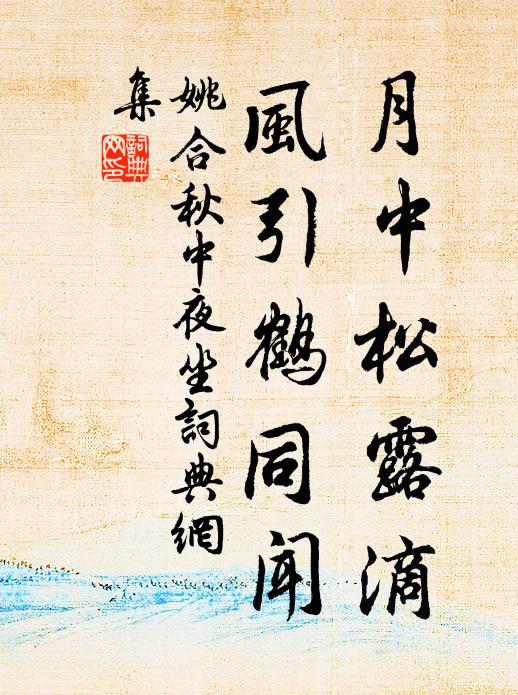 月中松露滴
風引鶴同聞
姚合秋中夜坐詞典網
集
詞典
网印